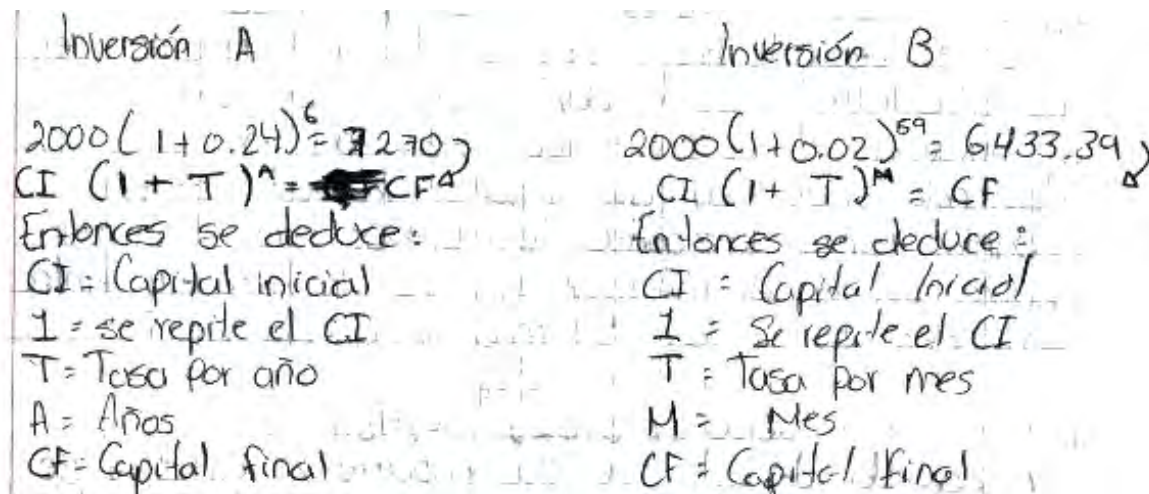 Inversión A
2000(1+0.24)^6 = 7270
CI (1 + T)^A = CF
Entonces se deduce:
CI = Capital inicial
1 = se repite el CI
T = Tasa por año
A = Años
CF = Capital final
Inversión B
2000(1+0.02)^59 = 6433.39
CI (1 + T)^M = CF
Entonces se deduce:
CI = Capital Inicial
1 = Se repite el CI
T = Tasa por mes
M = Mes
CF = Capital final